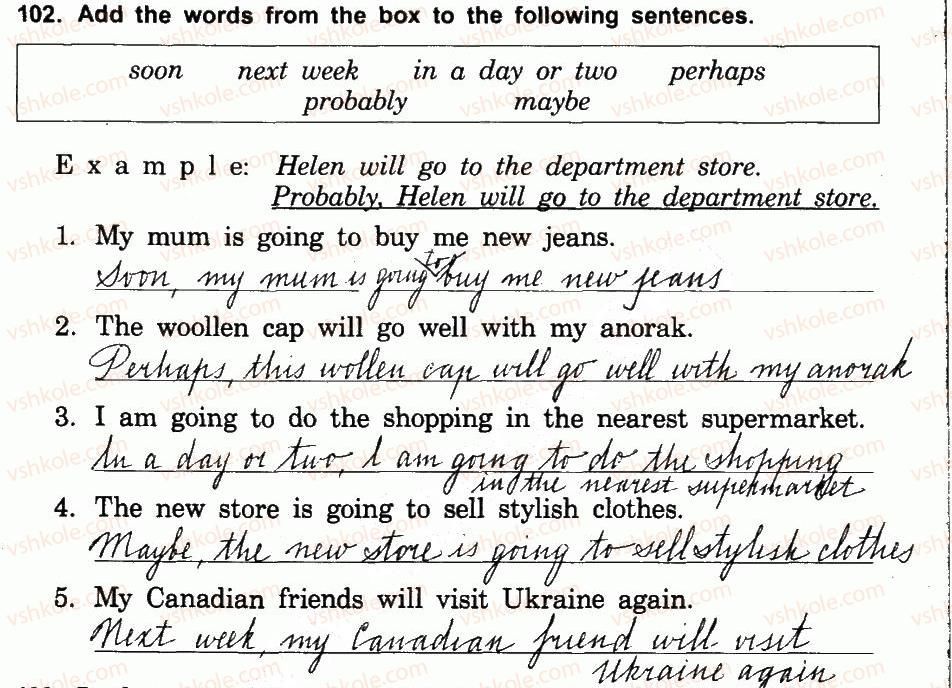 102. Add the words from the box to the following sentences.
soon next week in a day or two perhaps
probably maybe
Example: Helen will go to the department store.
Probably, Helen will go to the department store.
1. My mum is going to buy me new jeans.
Soon, my mum is going to buy me new jeans
2. The woollen cap will go well with my anorak.
Perhaps, this wollen cap will go well with my anorak
3. I am going to do the shopping in the nearest supermarket.
In a day or two, I am going to do the shopping
in the nearest supermarket
4. The new store is going to sell stylish clothes.
Maybe, the new store is going to sell stylish clothes
5. My Canadian friends will visit Ukraine again.
Next week, my Canadian friend will visit
Ukraine again